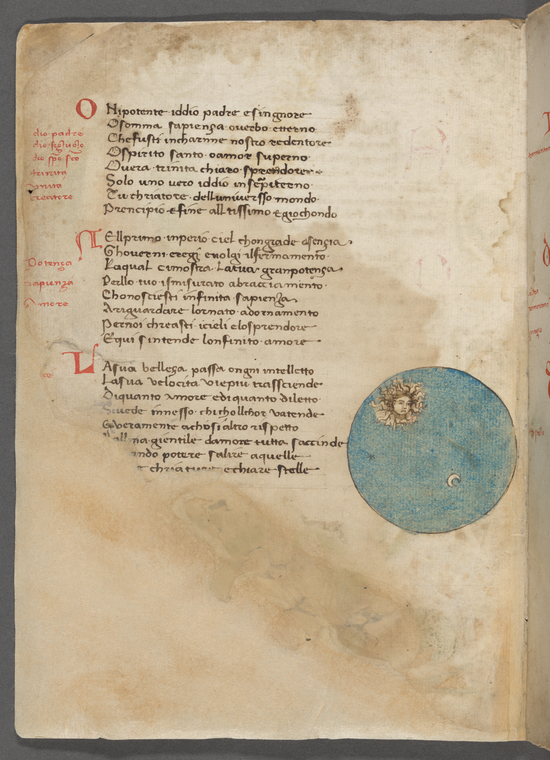 O Nipotente iddio padre esingnore
Osomma sapiensa overbo etterno
Chefusti incharne nostro redentore
Ospirito santo oamor superno
Overa trinita chiaro sprendore
Solo uno vero iddio insenpiterno
Tu chriatore delluniversso mondo
Prencipio efine alltissimo egiochondo
dio padre
dio
dio spo sco
trinita
creatore
N Ellprimo inperio ciel chongrade esensia
Ghoverni eregi evolgi ilfermamento
Laqual cimostra Latua granpotensa
Perllo tuo ismisurato abracciamento
Chonosciesti infinita sapiensa
Ariguardare lornato adornamento
Pernoi chreasti icieli elosprendore
Equi sintende lonfinito amore
Potensa
sapiensa
Amore
L Asua bellesa passa ongni intelletto
Lasua velocita viepiu trassciende
Diquanto amore ediquanto diletto
innesso chichollchor vatende
achosi altro rispetto
na gientile damore tutta saccinde
ando potere salire aquelle
chriature echiare stelle